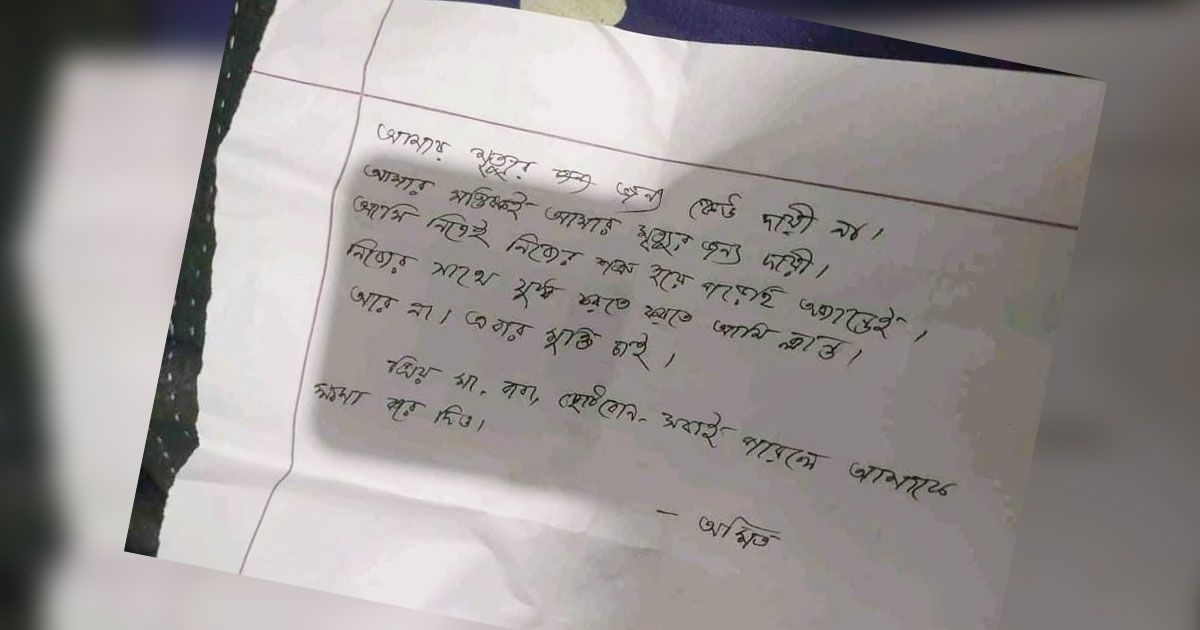 আমার মৃত্যুর জন্য জন্য কেউ দায়ী না।
আমার মস্তিষ্কই আমার মৃত্যুর জন্য দায়ী।
আমি নিজেই নিজের শত্রু হয়ে পড়েছি অজান্তেই।
নিজের সাথে যুদ্ধ করতে করতে আমি ক্লান্ত।
আর না। এবার মুক্তি চাই।
প্রিয় মা, বাবা, ছোটবোন- সবাই পারলে আমাকে
ক্ষমা করে দিও।
- অমিত